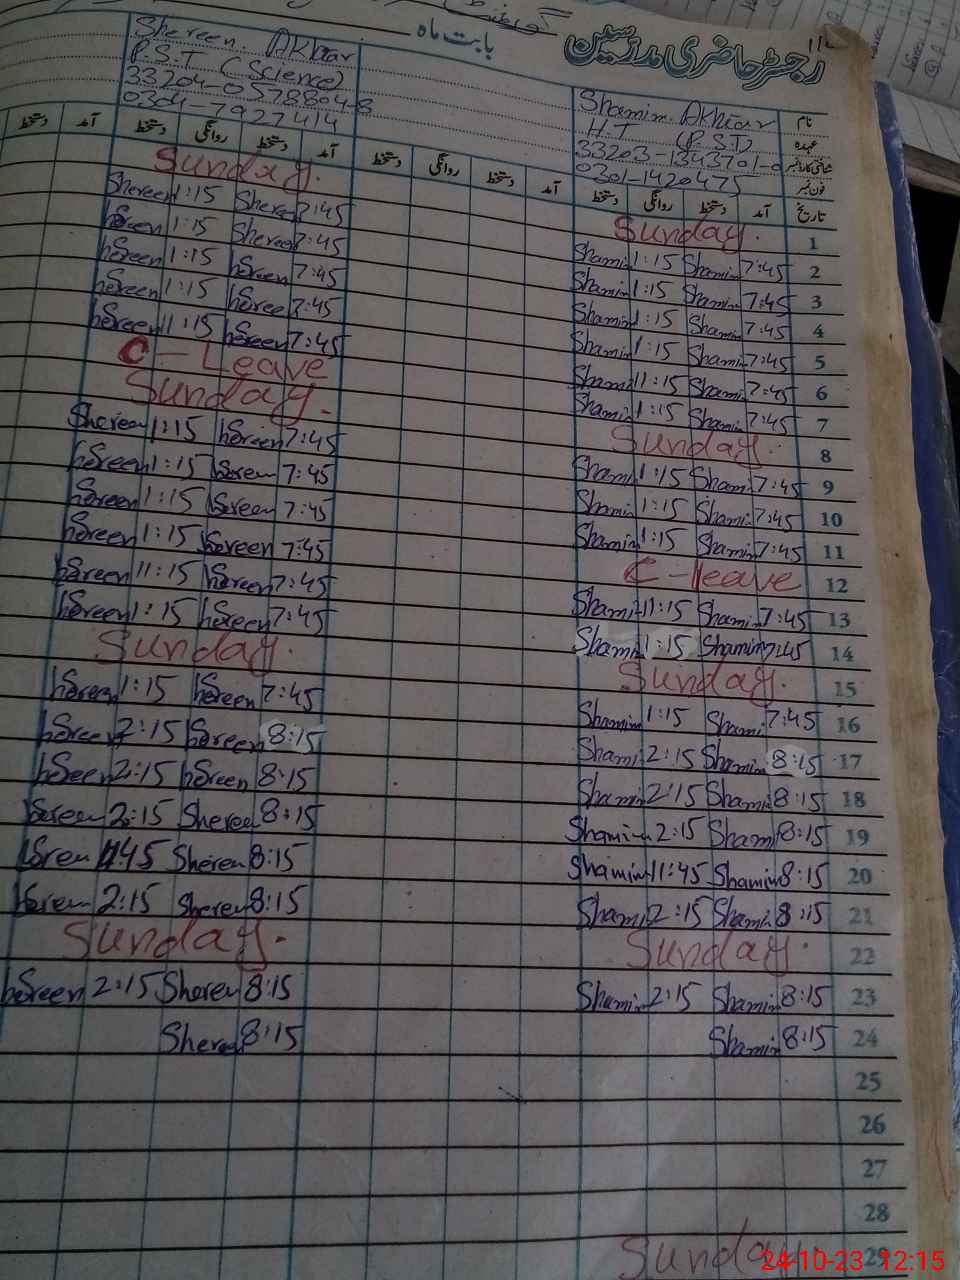 رجسٹر حاضری مدرسین بابت ماہ
نام Shamim. Akhtar Shereen. Akhtar
عہدہ H.T (P.S.T) P.S.T (Science)
شناختی کارڈ نمبر 33203-1343701- 33204-0578804-8
فون نمبر 0301-1420475 0304-7927414
تاریخ آمد دستخط روانگی دستخط آمد دستخط روانگی دستخط آمد دستخط روانگی دستخط آمد دستخط
1 Sunday. Sunday.
2 7:45 Shamim 1:15 Shamim 7:45 Shereen 1:15 Shereen
3 7:45 Shamim 1:15 Shamim 7:45 Shereen 1:15 Shereen
4 7:45 Shamim 1:15 Shamim 7:45 Shereen 1:15 Shereen
5 7:45 Shamim 1:15 Shamim 7:45 Shereen 1:15 Shereen
6 7:45 Shamim 11:15 Shamim 7:45 Shereen 11:15 Shereen
7 7:45 Shamim 1:15 Shamim C-Leave
8 Sunday. Sunday.
9 7:45 Shamim 1:15 Shamim 7:45 Shereen 1:15 Shereen
10 7:45 Shamim 1:15 Shamim 7:45 Shereen 1:15 Shereen
11 7:45 Shamim 1:15 Shamim 7:45 Shereen 1:15 Shereen
12 C-leave 7:45 Shereen 1:15 Shereen
13 7:45 Shamim 11:15 Shamim 7:45 Shereen 11:15 Shereen
14 7:45 Shamim 1:15 Shamim 7:45 Shereen 1:15 Shereen
15 Sunday. Sunday.
16 7:45 Shamim 1:15 Shamim 7:45 Shereen 1:15 Shereen
17 8:15 Shamim 2:15 Shamim 8:15 Shereen 2:15 Shereen
18 8:15 Shamim 2:15 Shamim 8:15 Shereen 2:15 Shereen
19 8:15 Shamim 2:15 Shamim 8:15 Shereen 2:15 Shereen
20 8:15 Shamim 11:45 Shamim 8:15 Shereen 11:45 Shereen
21 8:15 Shamim 2:15 Shamim 8:15 Shereen 2:15 Shereen
22 Sunday. Sunday.
23 8:15 Shamim 2:15 Shamim 8:15 Shereen 2:15 Shereen
24 8:15 Shamim 8:15 Shereen
25
26
27
28
29 Sunday
24-10-23 12:15